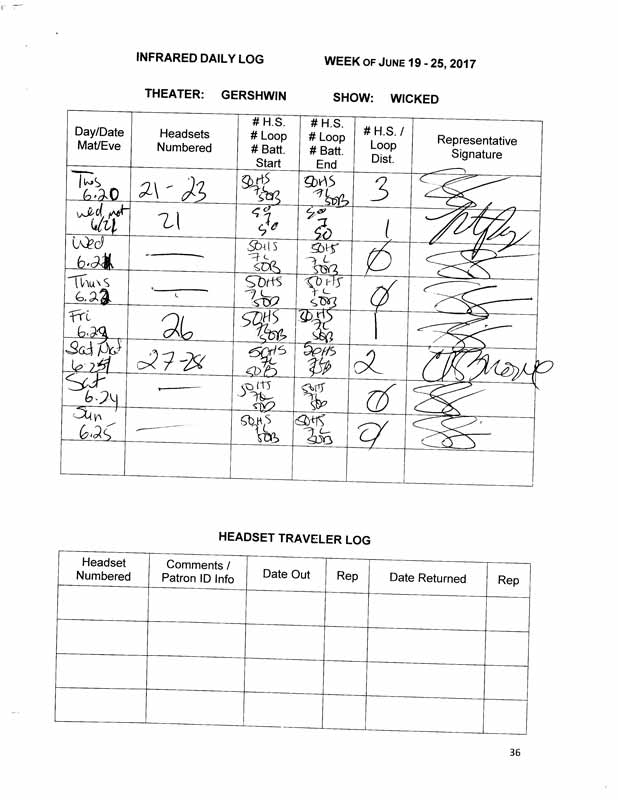 INFRARED DAILY LOG WEEK OF JUNE 19 - 25, 2017
THEATER: GERSHWIN SHOW: WICKED
Day/Date
Mat/Eve
Headsets
Numbered
# H.S.
# Loop
# Batt.
Start
# H.S.
# Loop
# Batt.
End
# H.S. /
Loop
Dist.
Representative
Signature
Tues
6.20
21-23
50HS
7L
50B
50HS
7L
50B
3
Wed mat
6/21
21
50
7
50
50
7
50
1
Wed
6.21
50HS
7L
50B
50HS
7L
50B
0
Thurs
6.22
50HS
7L
50B
50HS
7L
50B
0
Fri
6.23
26
50HS
7L
50B
50HS
7L
50B
1
Sat Mat
27-28
50HS
7L
50B
50HS
7L
50B
2
Sat
6.24
50HS
7L
50B
50HS
7L
50B
0
Sun
6.25
50HS
7L
50B
50HS
7L
50B
0
HEADSET TRAVELER LOG
Headset
Numbered
Comments /
Patron ID Info
Date Out
Rep
Date Returned
Rep
36